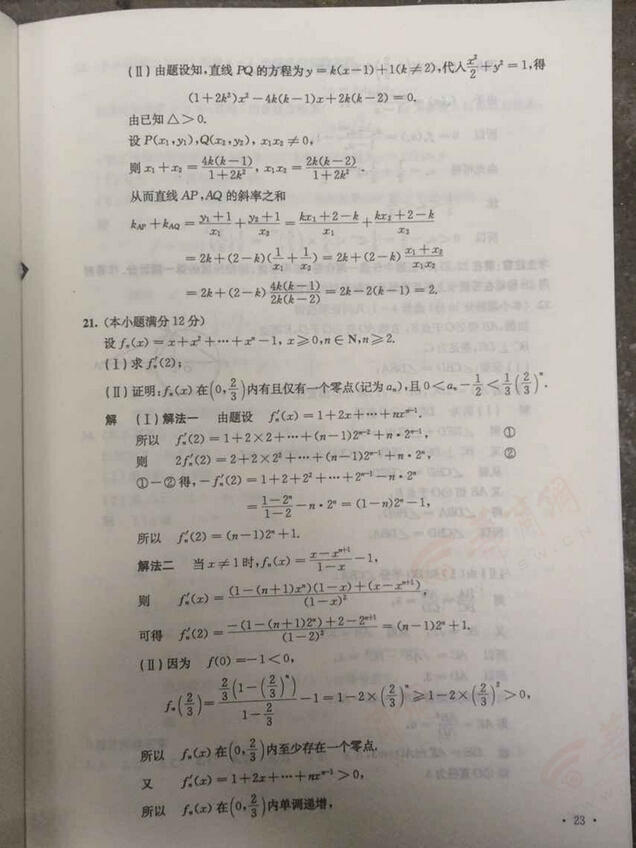 (Ⅱ)由题设知,直线 PQ 的方程为 y = k(x−1)+1(k≠2),代入 x²/2 + y² = 1,得
(1+2k²)x²−4k(k−1)x+2k(k−2) = 0.
由已知△>0.
设 P(x₁,y₁),Q(x₂,y₂), x₁x₂ ≠ 0,
则 x₁+x₂ = 4k(k−1)/(1+2k²), x₁x₂ = 2k(k−2)/(1+2k²).
从而直线 AP,AQ 的斜率之和
k_AP + k_AQ = (y₁+1)/x₁ + (y₂+1)/x₂ = (kx₁+2−k)/x₁ + (kx₂+2−k)/x₂
= 2k+(2−k)(1/x₁ + 1/x₂) = 2k+(2−k) (x₁+x₂)/(x₁x₂)
= 2k+(2−k) 4k(k−1)/(2k(k−2)) = 2k−2(k−1) = 2.
21. (本小题满分 12 分)
设 fₙ(x) = x+x²+⋯+xⁿ−1, x≥0,n∈N,n≥2.
(Ⅰ)求 fₙ′(2);
(Ⅱ)证明:fₙ(x)在(0, 2/3)内有且仅有一个零点(记为 aₙ),且 0 < aₙ − 1/2 < 1/3 (2/3)ⁿ.
解 (Ⅰ)解法一 由题设 fₙ′(x) = 1+2x+⋯+nxⁿ⁻¹.
所以 fₙ′(2) = 1+2×2+⋯+(n−1)2ⁿ⁻²+n·2ⁿ⁻¹, ①
则 2fₙ′(2) = 2+2×2²+⋯+(n−1)2ⁿ⁻¹+n·2ⁿ, ②
①−②得,−fₙ′(2) = 1+2+2²+⋯+2ⁿ⁻¹−n·2ⁿ
= (1−2ⁿ)/(1−2) − n·2ⁿ = (1−n)2ⁿ−1,
所以 fₙ′(2) = (n−1)2ⁿ+1.
解法二 当 x≠1 时,fₙ(x) = (x−xⁿ⁺¹)/(1−x) − 1,
则 fₙ′(x) = ((1−(n+1)xⁿ)(1−x)+(x−xⁿ⁺¹))/(1−x)²,
可得 fₙ′(2) = (−(1−(n+1)2ⁿ)+2−2ⁿ⁺¹)/(1−2)² = (n−1)2ⁿ+1.
(Ⅱ)因为 f(0)=−1<0,
fₙ(2/3) = (2/3)(1−(2/3)ⁿ)/(1−2/3) − 1 = 1−2×(2/3)ⁿ ≥ 1−2×(2/3)² > 0,
所以 fₙ(x)在(0, 2/3)内至少存在一个零点.
又 fₙ′(x) = 1+2x+⋯+nxⁿ⁻¹ > 0,
所以 fₙ(x)在(0, 2/3)内单调递增,
· 23 ·